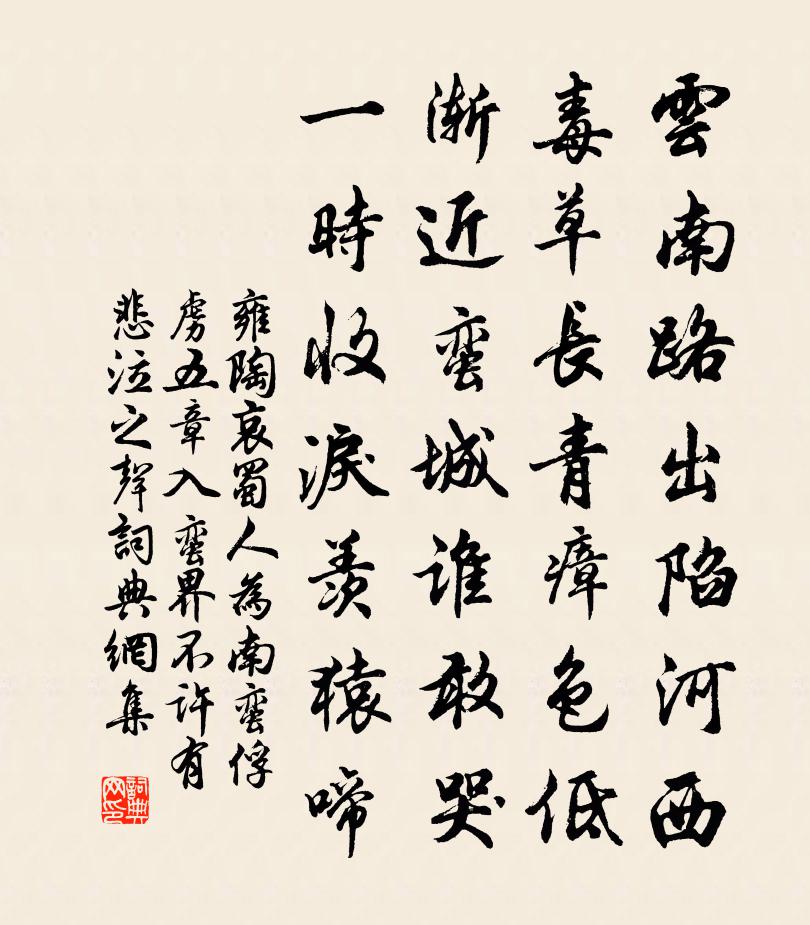 雲南路出陷河西
毒草長青瘴色低
漸近蠻城誰敢哭
一時收淚羨猿啼
雍陶哀蜀人為南蠻俘
虜五章入蠻界不許有
悲泣之聲詞典網集
詞典
网印